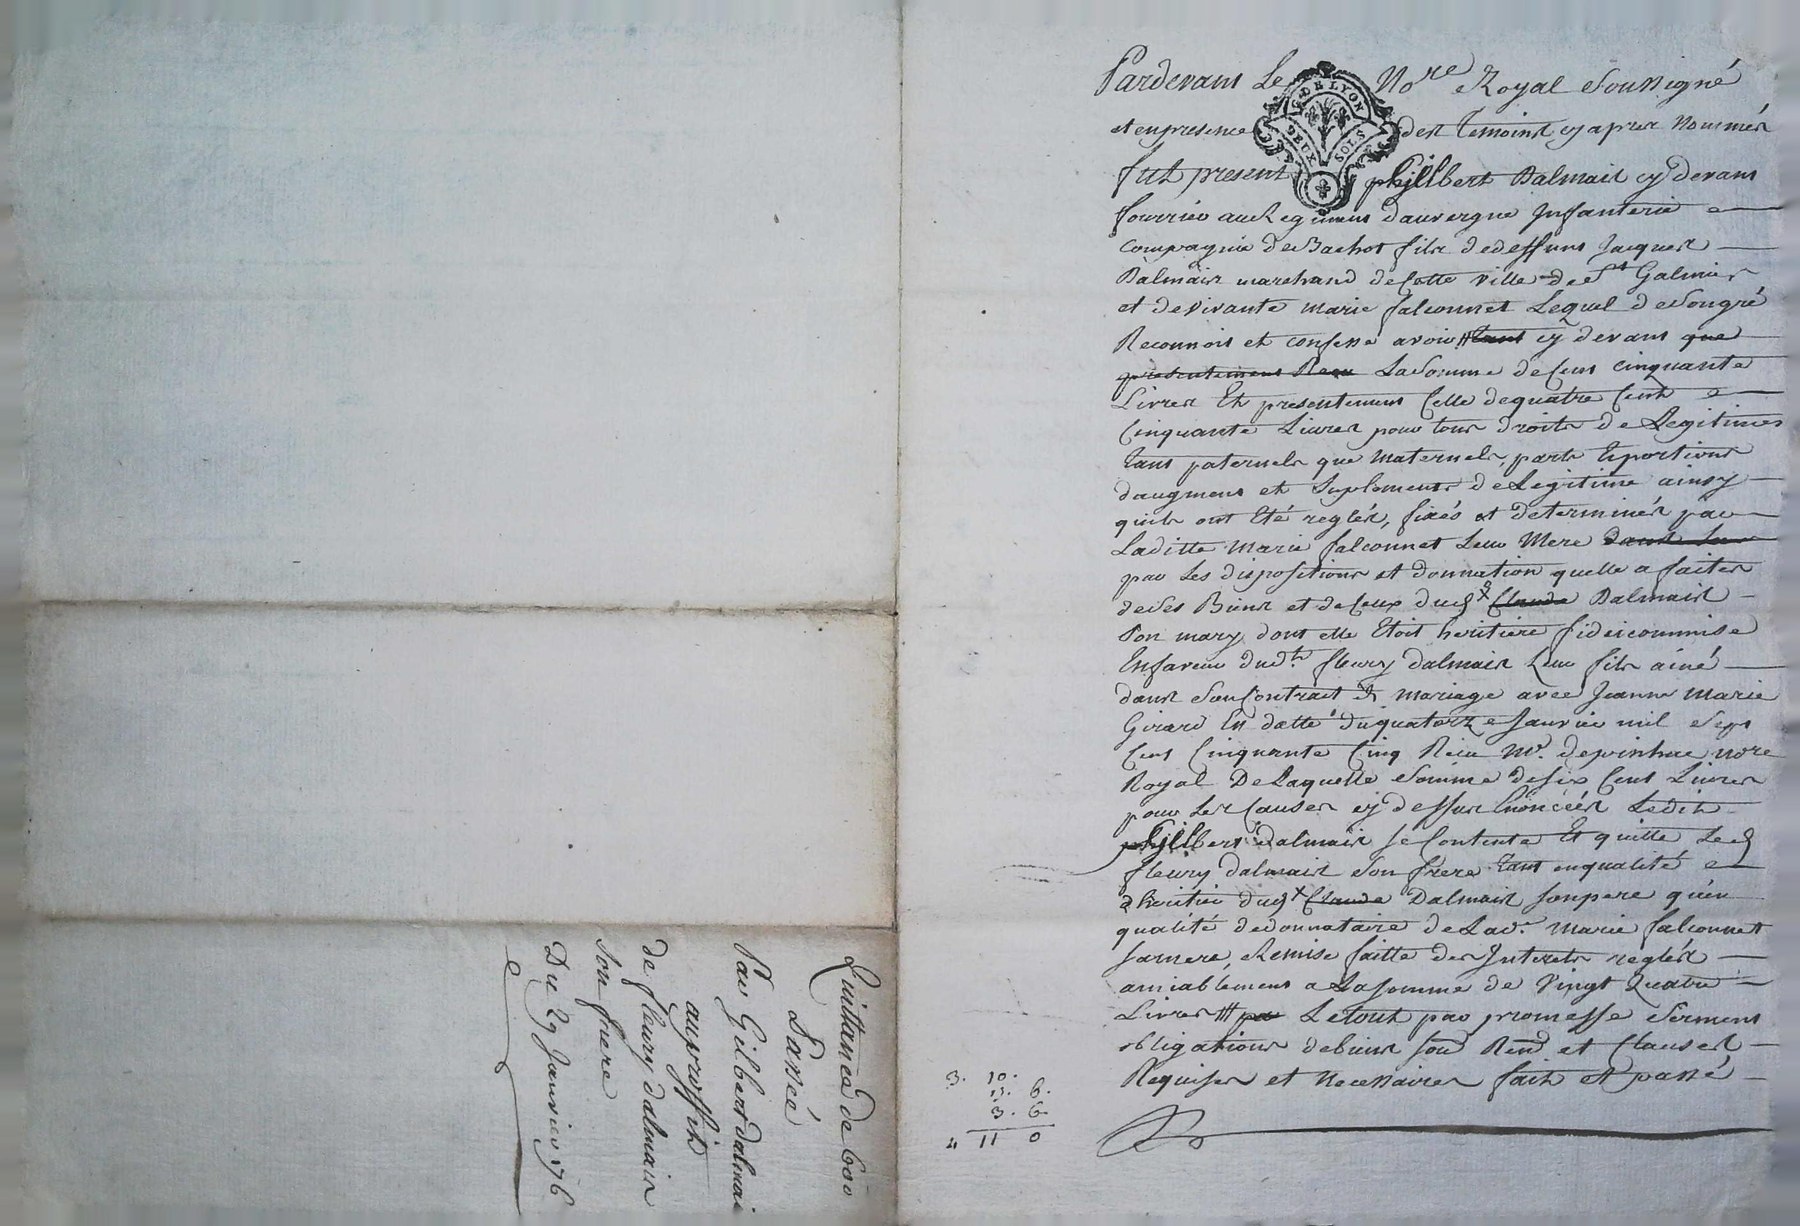 Pardevant Le Nore Royal Soussigné
et en presence des temoins cy apres Nommés
fut present philbert Dalmais cy devant
fourrier au Regiment dauvergne Infanterie
Compagnie de Bachot fils de deffunt Jacques
Dalmais marchand de Cette ville de st Galmier
et de vivante marie falconnet Lequel de son gré
Reconnoit et confesse avoir tant cy devant que
presentement Reçu La Somme de Cent cinquante
Livres Et presentement Celle de quatre Cent
Cinquante Livres pour tous droits de Legitimes
tant paternels que Maternels, parts Et portions
daugment et Suplements de Legitime ainsy
quils ont Eté reglés, fixés et determinés par
Laditte Marie falconnet Leur Mere dans Leur
par Les dispositions et donnation quelle a faites
de Ses Biens et de Ceux dud x Claude Dalmais
Son mary dont elle Etoit heritiere fideicommise
En faveur dudt. fleury dalmais Leur fils ainé
dans Son Contrait de mariage avec Jeanne Marie
Girard En datte du quatorze Janvier mil Sept
Cent Cinquante Cinq Reçu Me. depinhac nore
Royal De Laquelle Somme de six Cent Livres
pour Les Causes cy dessus Enoncées Ledit
philbert Dalmais se Contente Et quitte Led
fleury dalmais Son frere tant en qualité
dheritier dud x Claude Dalmais son pere quen
qualité de donnataire de Lade. Marie falconnet
sa mere, Remise faitte des Interets reglés
amiablement a La somme de Vingt Quatre
Livres par Le tout par promesse Serment
obligations de biens Soud Rend et Clauses
Requises et Necessaires fait et passé
3. 10.
13. 6.
3. 6.
4 11 0
Quittance de 600
Passée
Par Gilbert dalmai
au proffit
de fleury dalmais
son frere
Du 29 Janvier 176